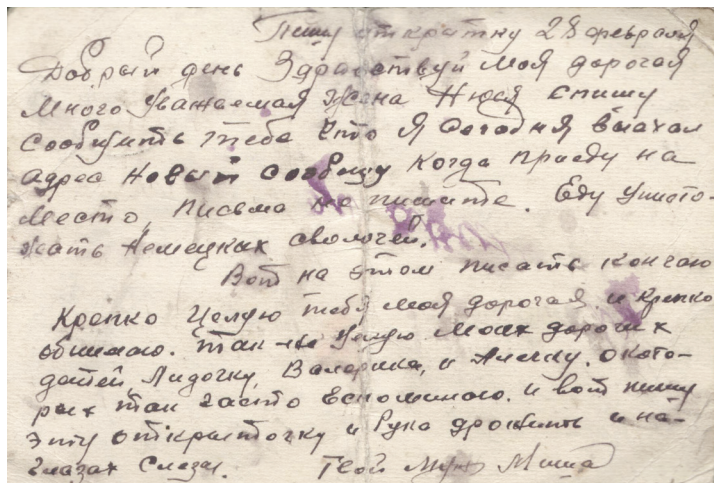 Пишу открытку 28 февраля
Добрый день Здравствуй моя дорогая
много Уважаемая Жена Нюся спишу
сообщить тебе что я сегодня выехал
адрес новый сообщу когда приеду на
место, письма не пишите. Еду уничто-
жать немецких сволочей.
Вот на этом писать кончаю
Крепко целую тебя моя дорогая и крепко
обнимаю. так-же целую моих дорогих
детей, Лидочку, Валерика, и Алечку. о кото-
рых так часто вспоминаю. и вот пишу
эту открыточку и рука дрожить и на-
глазах слезы. Твой муж Миша